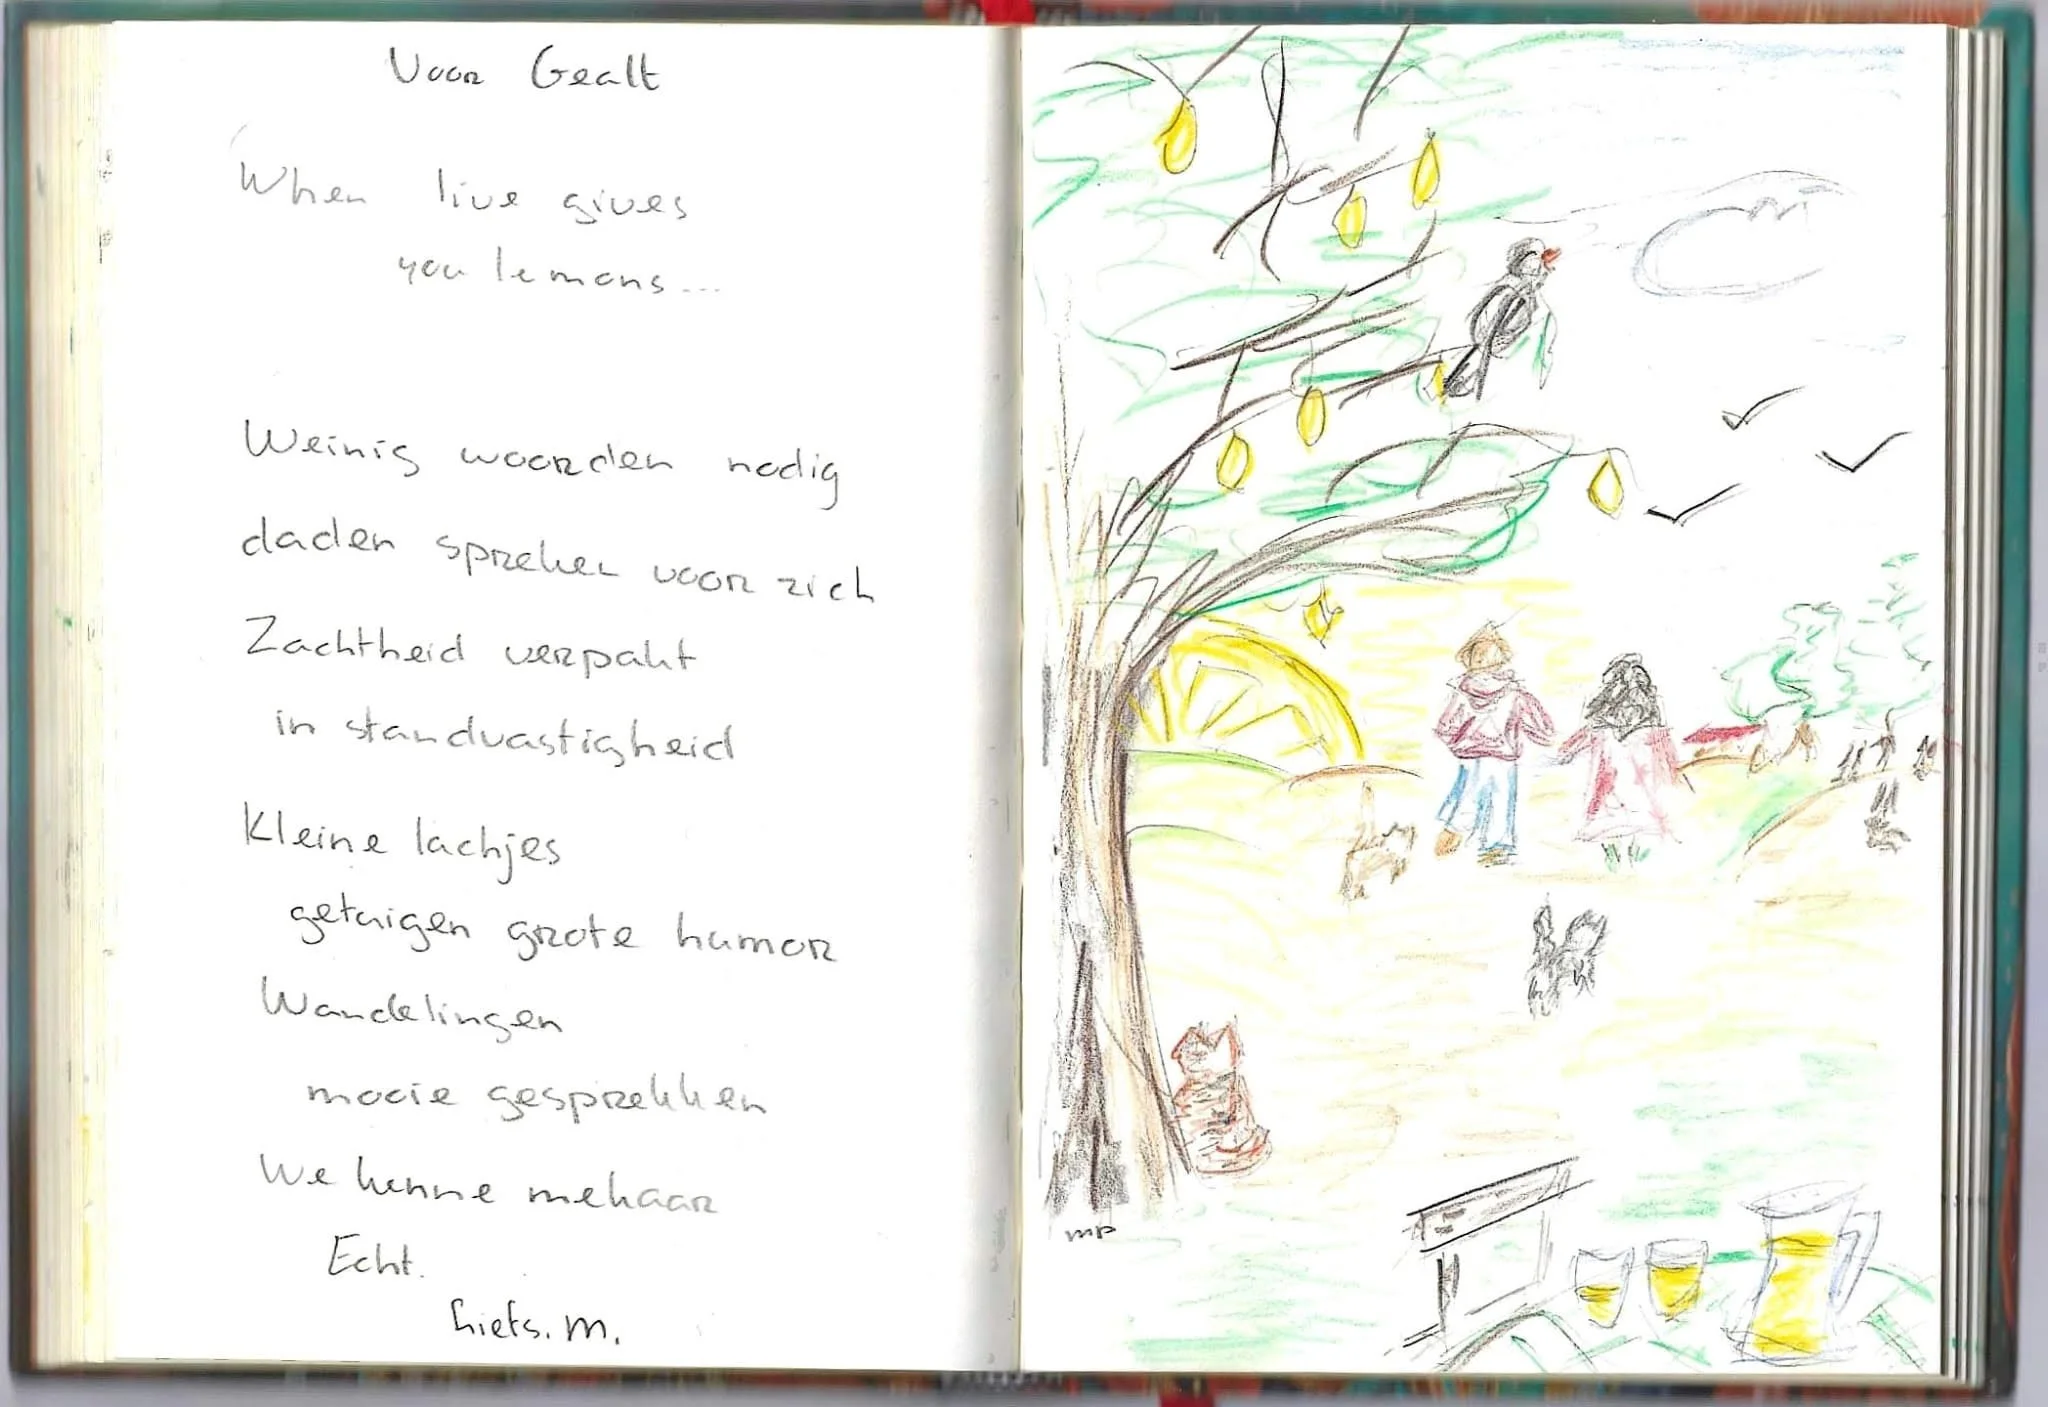 Voor Gealt
When live gives
you lemons...
Weinig woorden nodig
daden spreken voor zich
Zachtheid verpakt
in standvastigheid
Kleine lachjes
getuigen grote humor
Wandelingen
mooie gesprekken
We kenne mekaar
Echt.
liefs. M.
MP